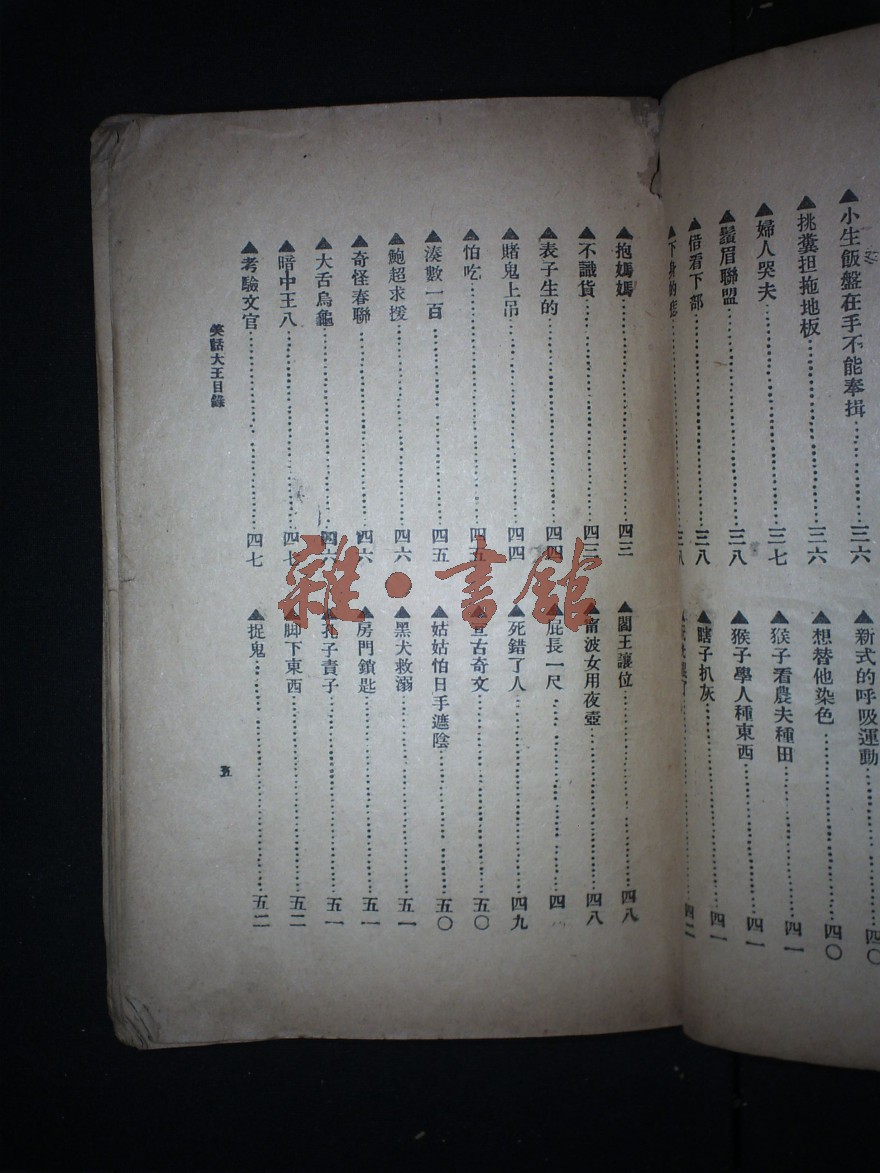 ▲小生飯盤在手不能奉揖……三六
▲挑糞担拖地板……三六
▲婦人哭夫……三七
▲鬚眉聯盟……三八
▲借看下部……三八
▲下身的
三八
新式的呼吸運動……四〇
▲想替他染色……四〇
▲猴子看農夫種田……四一
▲猴子學人種東西……四一
▲瞎子扒灰……四一
四二
▲抱媽媽……四三
▲不識貨……四三
▲表子生的……四四
▲賭鬼上吊……四四
▲怕吃……四五
▲湊數一百……四五
▲鮑超求援……四六
▲奇怪春聯……四六
▲大舌烏龜……四六
▲暗中王八……四七
▲考驗文官……四七
▲閻王讓位……四八
▲甯波女用夜壺……四八
▲屁長一尺……四
▲死錯了人……四九
▲亘古奇文……五〇
▲姑姑怕日手遮陰……五〇
▲黑犬救溺……五一
▲房門鎖匙……五一
▲孔子責子……五一
▲脚下東西……五二
▲捉鬼……五二
笑話大王目錄
五
雜·書館